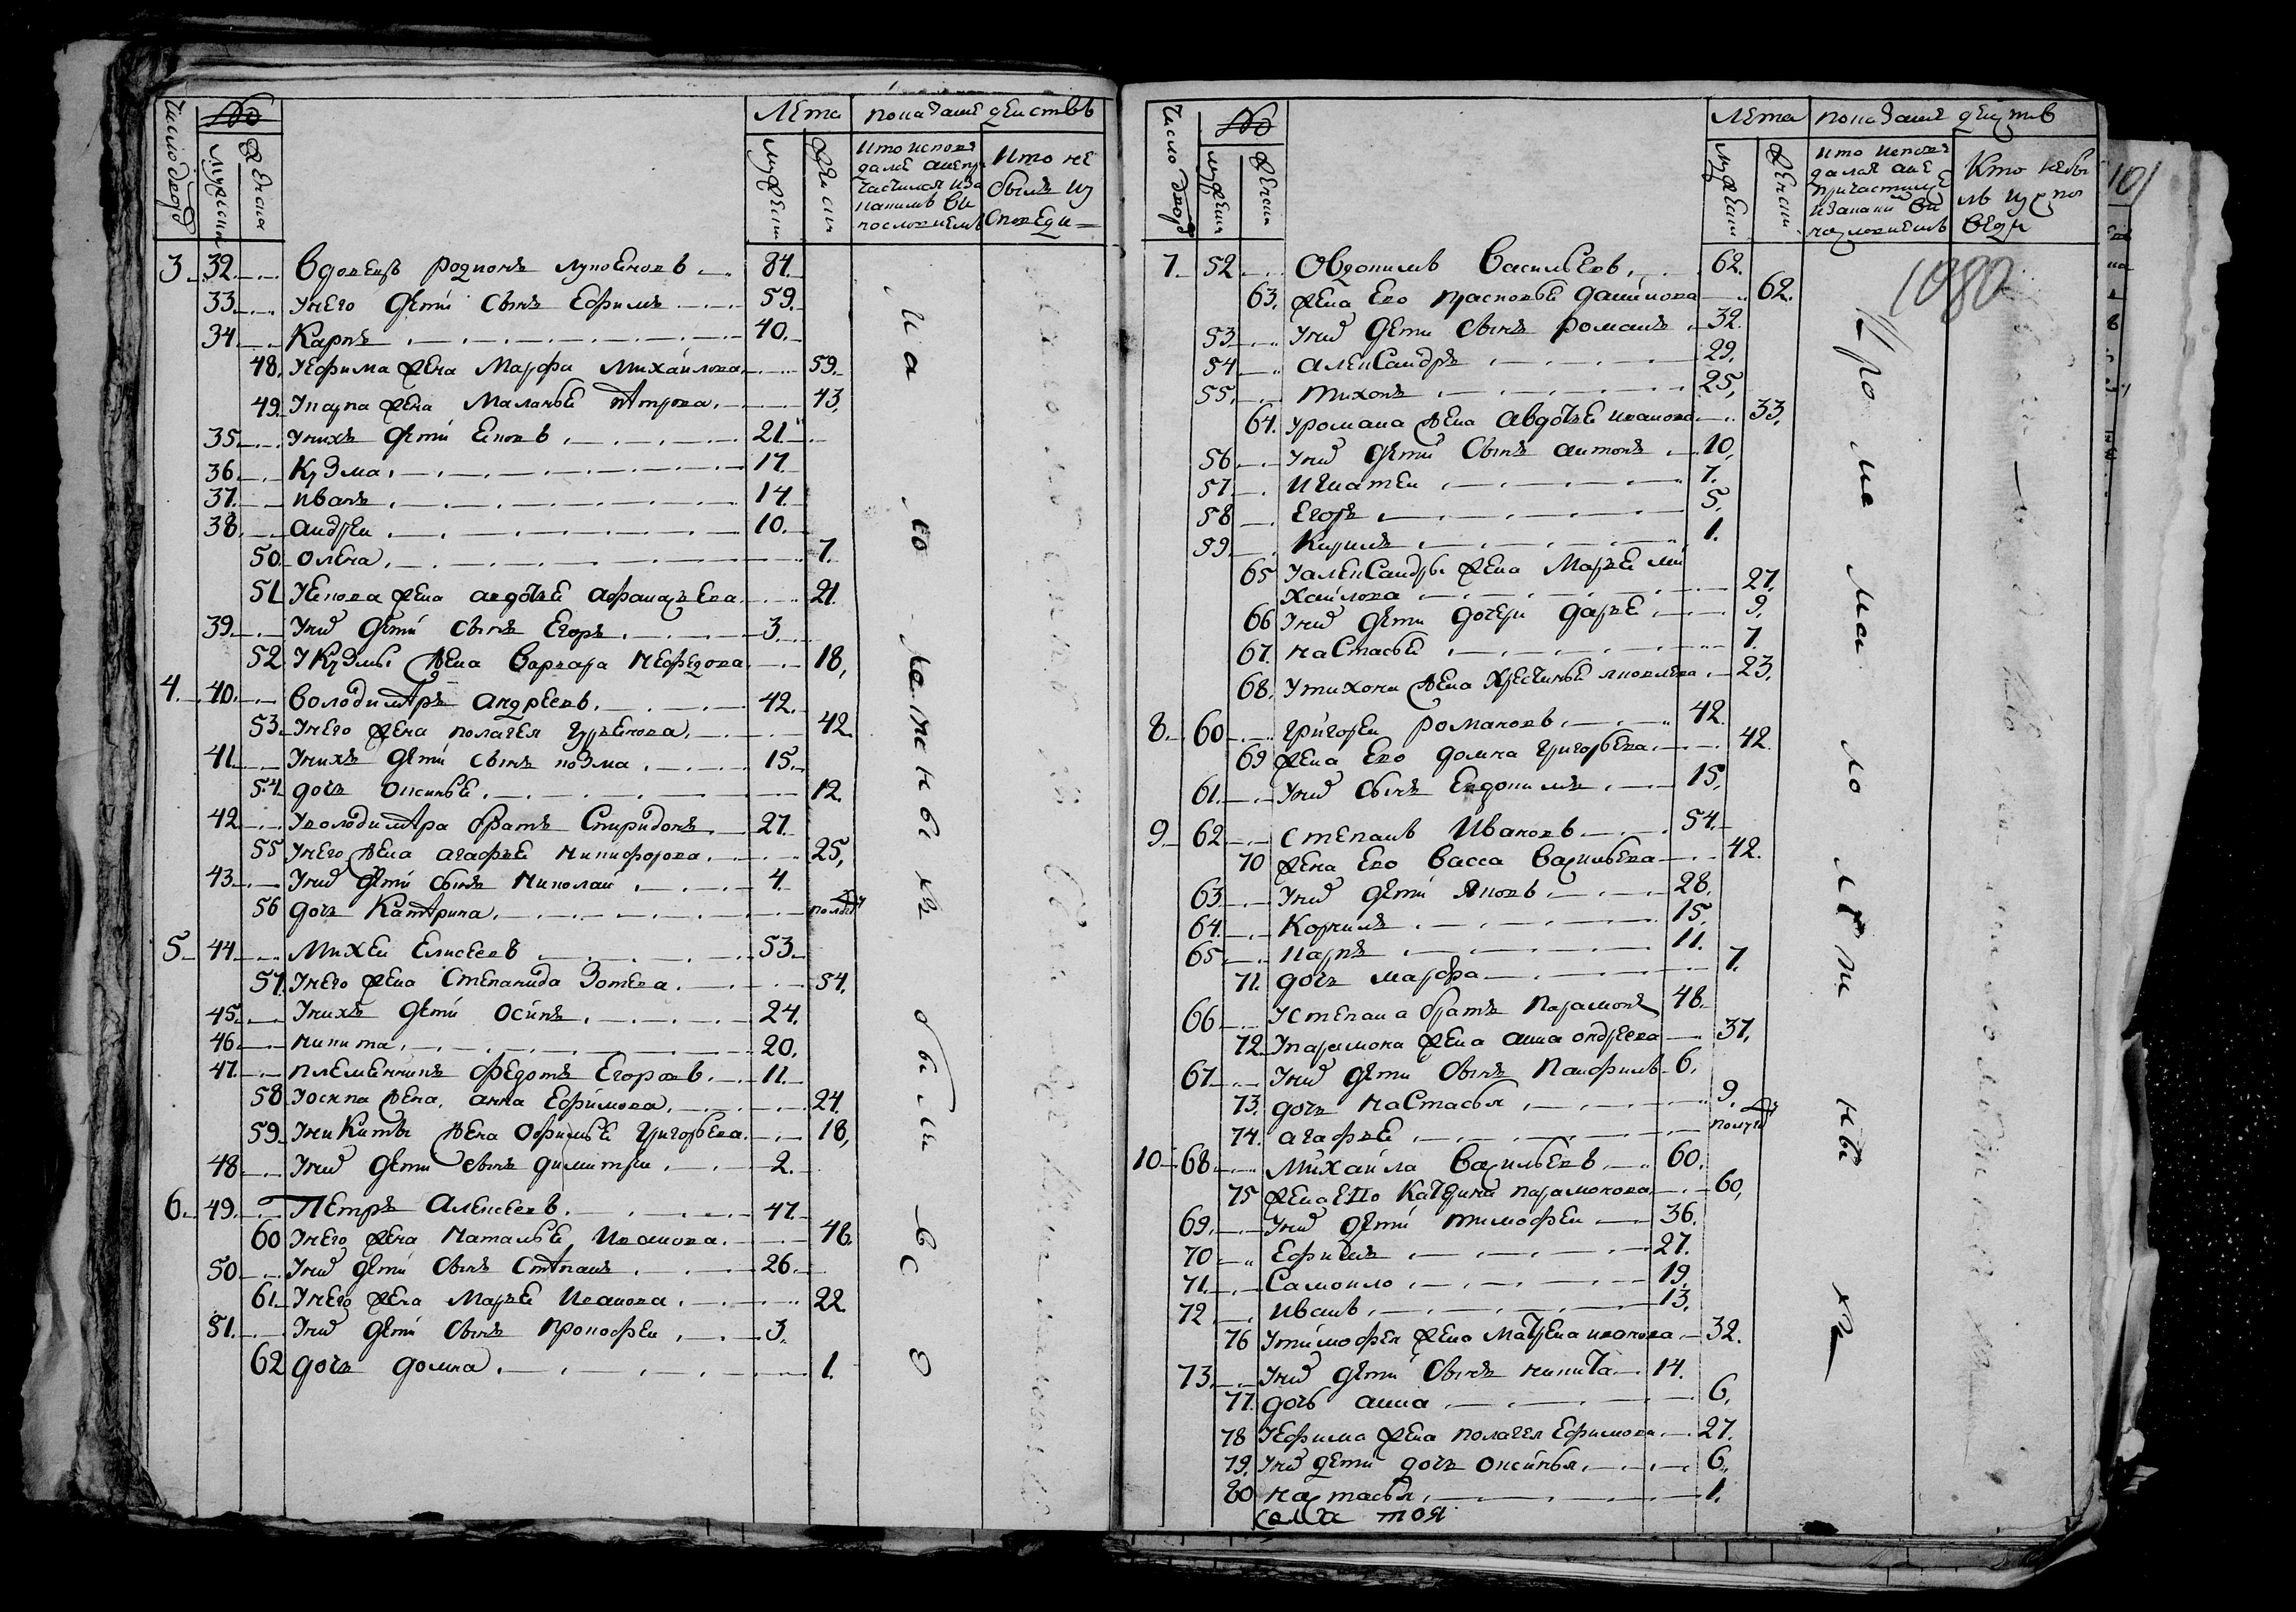 Число дворов
№
Мужеска
Женска
Лета
показание действъ
мужеска
женска
кто испове
далсѧ
Кто не
былъ
исповеди
3 32 Вдовецъ Родионъ Лукоѧновъ 84
33 У него дети сынъ Ефимъ 59
34 Карпъ 40
48 У Ефима жена Марфа Михайлова 59
49 У Карпа жена Маланьѧ Петрова 43
35 У нихъ дети Ековъ 21
36 Кузма 17
37 Иванъ 14
38 Андрей 10
50 Олена 7
51 У Екова жена Авдотьѧ Афанасьева 21
39 У них дети сынъ Егоръ 3
52 У Кузмы жена Варвара Нефедова 18
4 40 Володимеръ Андреевъ 42
53 У него жена Полагеѧ 42
41 У нихъ дети сынъ Козма 15
54 дочь Оксиньѧ 12
42 У Володимера братъ Спиридонъ 27
55 У него жена Агафьѧ Никифорова 25
43 У них дети сынъ Николай 4
56 дочь Катерина полгода
5 44 Михей Елисеевъ 53
57 У него жена Степанида Зотева 54
45 У нихъ дети Осипъ 24
46 Никита 20
47 племянникъ Федотъ Егоровъ 11
58 У Осипа жена Анна Ефимова 24
59 У Никиты жена Офимьѧ Григорьева 18
48 У них дети сынъ Димитрей 2
6 49 Петръ Алексеевъ 47
60 У него жена Натальѧ Иванова 48
50 У них дети сынъ Степанъ 26
61 У него жена Марьѧ Иванова 22
51 У них дети сынъ Прокофей 3
62 дочь Домна 1
малолетныхъ
были все
Число дворов
№
мужеска
женска
Лета
показание действ
мужеска
женска
кто испове
далсѧ
Кто не бы
лъ
101
1080
7 52 Овдокимъ Васильевъ 62
63 жена Ево Прасковьѧ Данилова 62
53 У них дети сынъ Романъ 32
54 Александръ 29
55 Тихонъ 25
64 У Романа жена Авдотьѧ Иванова 33
56 У них дети сынъ Антонъ 10
57 Игнатей 7
58 Егоръ 5
59 Кирилъ 1
65 У Александры жена Марьѧ Ми
хайлова 27
66 У них дети дочери Дарьѧ 9
67 Настасьѧ 7
68 У Тихона жена Хрестиньѧ Яковлева 23
8 60 Григорей Романовъ 42
69 жена Ево Домна Григорьева 42
61 У них сынъ Евдокимъ 15
9 62 Степанъ Ивановъ 54
70 жена Ево Васса Васильева 42
63 У них дети Яковъ 28
64 Корнилъ 15
65 Карпъ 11
71 дочь Марфа 7
66 У Степана братъ Парамонъ 48
72 У Парамона жена Анна Ондреева 37
67 У них дети сынъ Панфилъ 6
73 дочь Настасьѧ 9
74 Агафьѧ полгода
10 68 Михайла Васильевъ 60
75 жена Ево Катерина Парамонова 60
69 У них дети Тимофей 36
70 Ефимъ 27
71 Самойло 19
72 Иванъ 13
76 У Тимофеѧ жена Матрена Иванова 32
73 У них дети сынъ Никита 14
77 дочь Анна 6
78 У Ефима жена Полагеѧ Ефимова 27
79 У них дети дочь Оксиньѧ 6
80 Настасьѧ 1
Кроме малолетныхъ